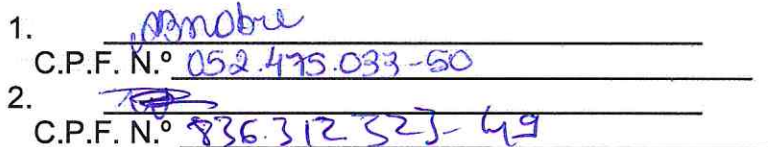 1. ABnobre
C.P.F. N.º 052.475.033-50
2.
C.P.F. N.º 836.312323-49